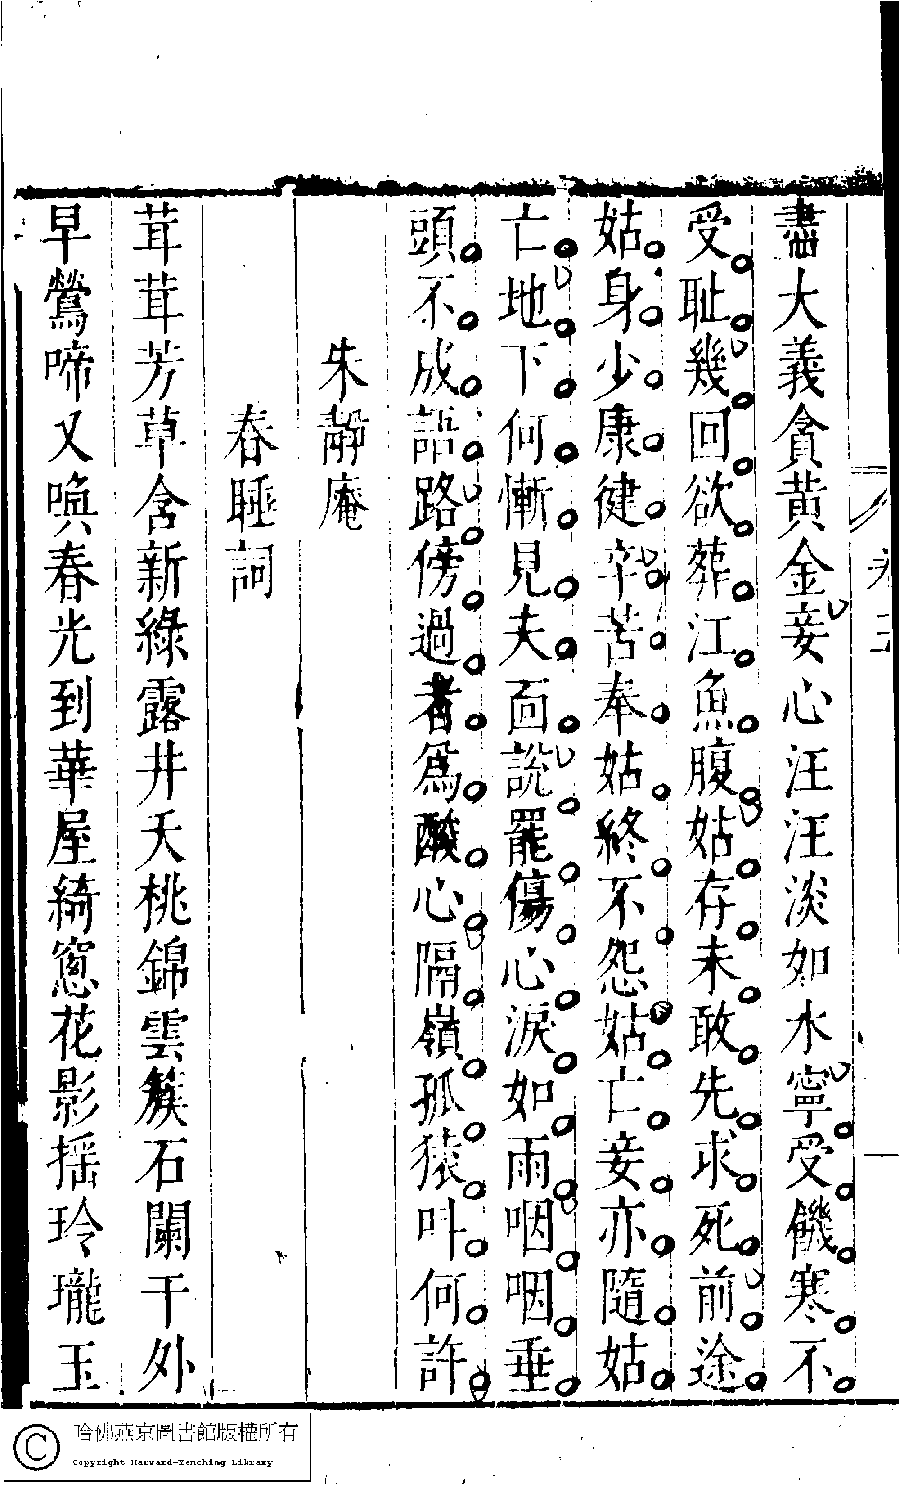 盡大義貪黃金妾心汪汪淡如水寧受饑寒不
受耻幾回欲葬江魚腹姑存未敢先求死前途
姑身少康健辛苦奉姑終不怨姑亡妾亦隨姑
亡地下何慚見夫面說罷傷心淚如雨咽咽垂
頭不成語路傍過者爲酸心隔嶺孤猿叫何許
朱靜庵
春睡詞
茸茸芳草含新綠露井夭桃錦雲簇石闌干外
早鶯啼又喚春光到華屋綺窻花影揺玲瓏玉
哈佛燕京圖書館版權所有
Copyright Harvard-Yenching Library